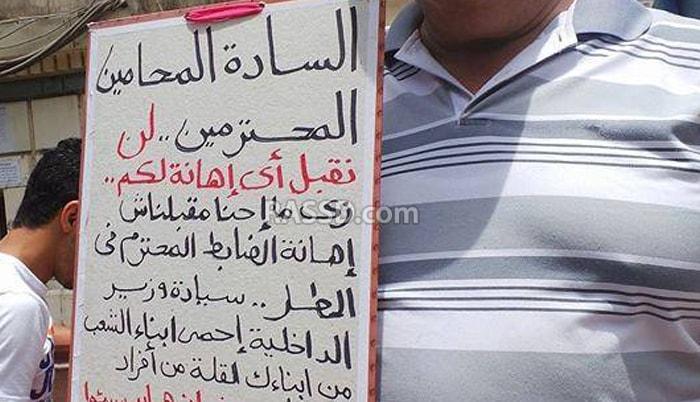 السادة المحامين
المحترمين.. لن
نقبل أى إهانة لكم..
زى ما إحنا مقبلناش
إهانة الضابط المحترم فى
المطار.. سيادة وزير
الداخلية إحمى ابناء الشعب
من ابناءك القلة من أفراد
RASSD.com